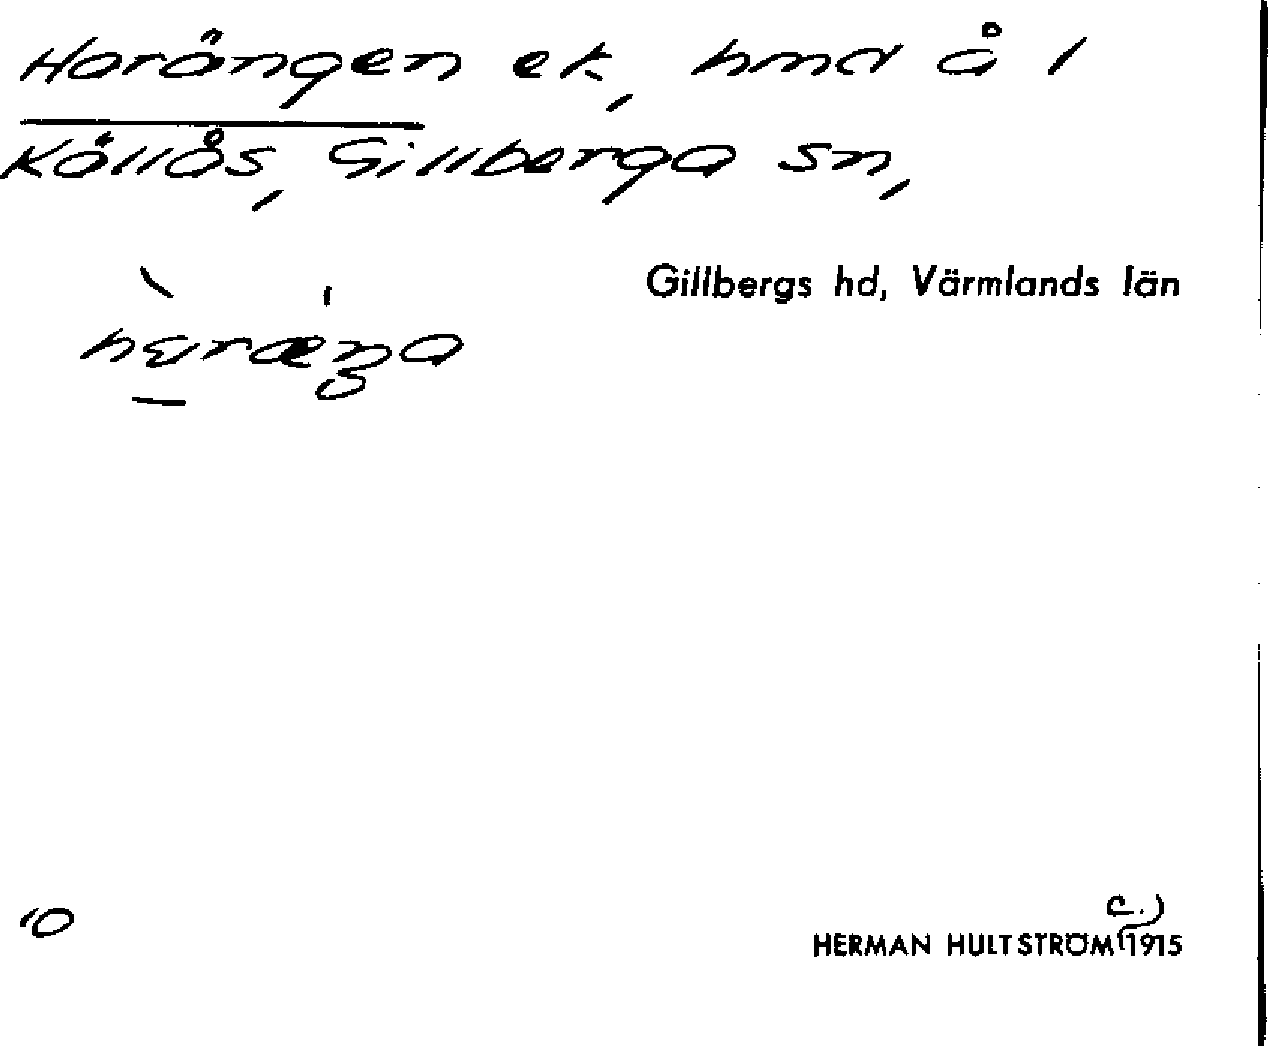 Harängen ek, hmd å 1
Källås, Gillberga sn,
Gillbergs hd, Värmlands län
10
c.)
HERMAN HULTSTRÖM (1915